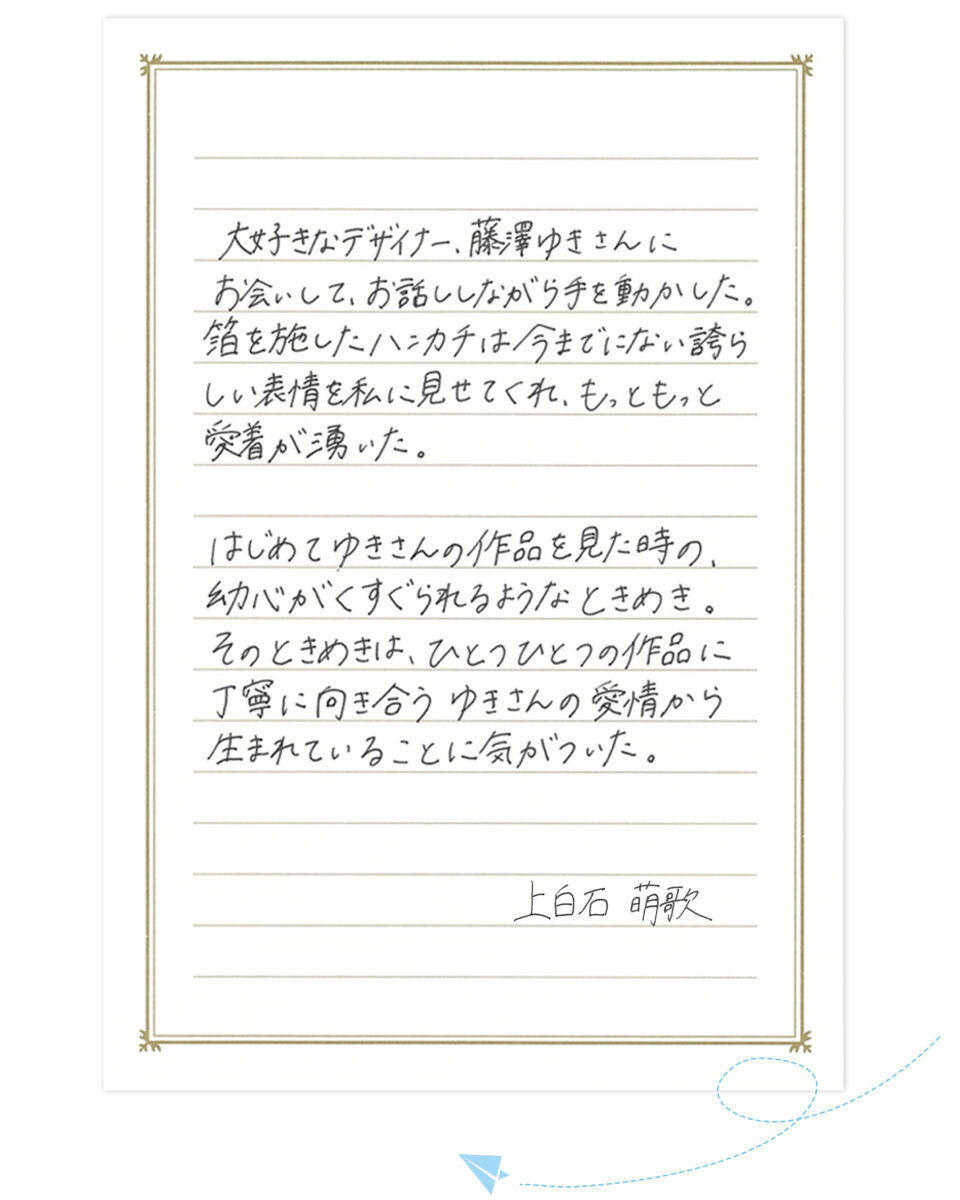 大好きなデザイナー、藤澤ゆきさんに
お会いして、お話ししながら手を動かした。
箔を施したハンカチは今までにない誇ら
しい表情を私に見せてくれ、もっともっと
愛着が湧いた。
はじめてゆきさんの作品を見た時の、
幼心がくすぐられるようなときめき。
そのときめきは、ひとつひとつの作品に
丁寧に向き合うゆきさんの愛情から
生まれていることに気がついた。
上白石 萌歌